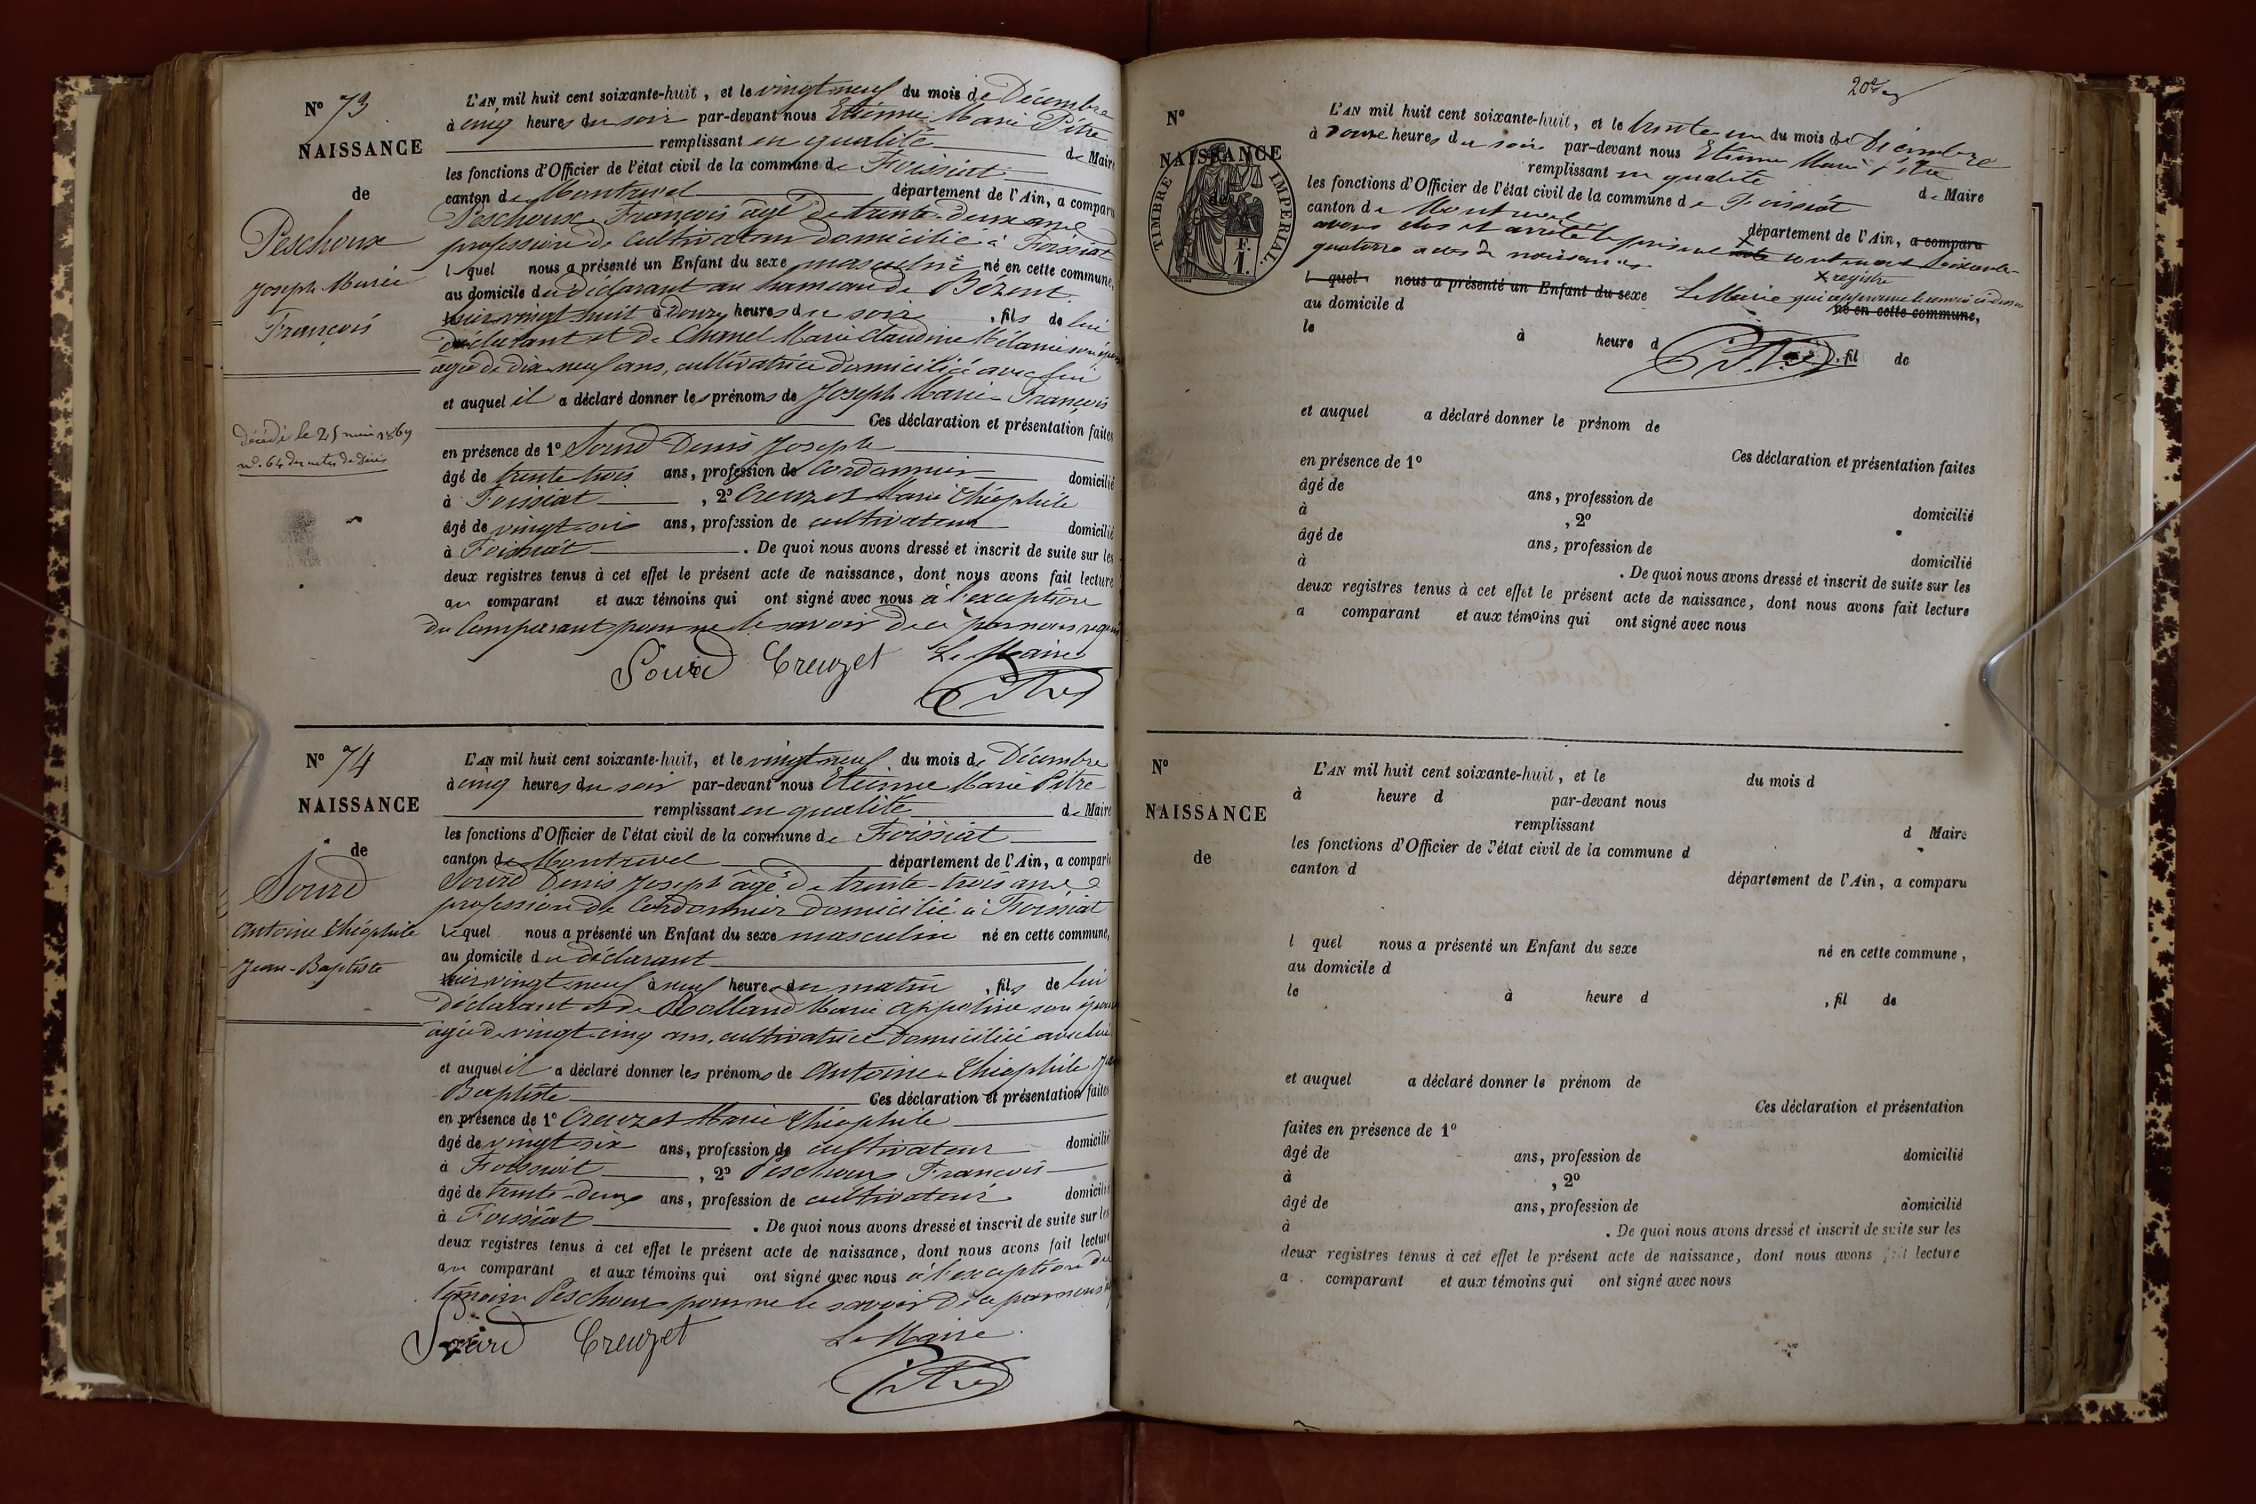 N° 73
NAISSANCE
de
Peschoux
Joseph Marie
François
décédé le 25 1869
n°. 64 des actes de décès
L'AN mil huit cent soixante-huit, et le vingt neuf du mois de Décembre
à cinq heures du soir par-devant nous Etienne Marie Pitre
remplissant en qualité de Maire
les fonctions d'Officier de l'état civil de la commune de Foissiat
canton de Montrevel département de l'Ain, a comparu
Peschoux François âgé de trente-deux ans
profession de cultivateur domicilié à Foissiat
lequel nous a présenté un Enfant du sexe masculin né en cette commune,
au domicile du déclarant au hameau de Bézent
hier vingt huit à douze heures du soir, fils de lui
déclarant et de Charnel Marie Claudine Mélanie son épouse
âgée de dix-neuf ans, cultivatrice domiciliée avec lui
et auquel il a déclaré donner les prénoms de Joseph Marie-François
Ces déclaration et présentation faites
en présence de 1° Sourd Denis Joseph
âgé de trente trois ans, profession de Cordonnier domicilié
à Foissiat, 2° Creuzet Marie Théophile
âgé de vingt six ans, profession de cultivateur domicilié
à Foissiat. De quoi nous avons dressé et inscrit de suite sur les
deux registres tenus à cet effet le présent acte de naissance, dont nous avons fait lecture
au comparant et aux témoins qui ont signé avec nous à l'exception
du Comparant pour ne le savoir de ce par nous requis
Sourd Creuzet Le Maire
Pitre
N° 74
NAISSANCE
de
Sourd
Antoine Théophile
Jean-Baptiste
L'AN mil huit cent soixante-huit, et le vingt neuf du mois de Décembre
à cinq heures du soir par-devant nous Etienne Marie Pitre
remplissant en qualité de Maire
les fonctions d'Officier de l'état civil de la commune de Foissiat
canton de Montrevel département de l'Ain, a comparu
Sourd Denis Joseph âgé de trente-trois ans
profession de Cordonnier domicilié à Foissiat
lequel nous a présenté un Enfant du sexe masculin né en cette commune,
au domicile du déclarant
hier vingt neuf à neuf heures du matin, fils de lui
déclarant et de Rolland Marie Appoline son épouse
âgée de vingt-cinq ans, cultivatrice domiciliée avec lui
et auquel il a déclaré donner les prénoms de Antoine-Théophile Jean
Baptiste Ces déclaration et présentation faites
en présence de 1° Creuzet Marie Théophile
âgé de vingt six ans, profession de cultivateur domicilié
à Foissiat, 2° Peschoux François
âgé de trente-deux ans, profession de cultivateur domicilié
à Foissiat. De quoi nous avons dressé et inscrit de suite sur les
deux registres tenus à cet effet le présent acte de naissance, dont nous avons fait lecture
au comparant et aux témoins qui ont signé avec nous à l'exception du
témoin Peschoux pour ne le savoir de ce par nous
Sourd Creuzet Le Maire
Pitre
N°
NAISSANCE
de
TIMBRE IMPERIAL
F.
1.
L'AN mil huit cent soixante-huit, et le trente un du mois de Décembre
à douze heures du soir par-devant nous Etienne Marie Pitre
remplissant en qualité de Maire
les fonctions d'Officier de l'état civil de la commune de Foissiat
canton de Montrevel département de l'Ain, a comparu
avons clos et arrêté le présent acte contenant soixante-
quatorze actes de naissances
X registre
l quel nous a présenté un Enfant du sexe Le Maire qui approuve le renvoi ci-dessus
né en cette commune,
au domicile d
le à heure d, fil de
Pitre
et auquel a déclaré donner le prénom de
Ces déclaration et présentation faites
en présence de 1°
âgé de ans, profession de domicilié
à, 2°
âgé de ans, profession de domicilié
à. De quoi nous avons dressé et inscrit de suite sur les
deux registres tenus à cet effet le présent acte de naissance, dont nous avons fait lecture
a comparant et aux témoins qui ont signé avec nous
N°
NAISSANCE
de
L'AN mil huit cent soixante-huit, et le du mois d
à heure d par-devant nous
remplissant d Maire
les fonctions d'Officier de l'état civil de la commune d
canton d département de l'Ain, a comparu
l quel nous a présenté un Enfant du sexe né en cette commune,
au domicile d
le à heure d, fil de
et auquel a déclaré donner le prénom de
Ces déclaration et présentation
faites en présence de 1°
âgé de ans, profession de domicilié
à, 2°
âgé de ans, profession de domicilié
à. De quoi nous avons dressé et inscrit de suite sur les
deux registres tenus à cet effet le présent acte de naissance, dont nous avons fait lecture
a comparant et aux témoins qui ont signé avec nous